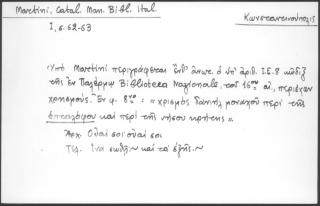 Martini, Catal. Man. Bibl. Ital.
I, σ. 62-63
Κωνσταντινούπολις
Ὑπὸ Martini περιγράφεται ἔνθ' ἀνωτ. ὁ ὑπ' ἀριθ. I.E.8 κῶδιξ
τῆς ἐν Παλέρμῳ Biblioteca Nazionale, τοῦ 16ου αἰ, περιέχων
χρησμούς. Ἐν φ. 8νο: «χρισμὸς Δανιὴλ μοναχοῦ περὶ τῆς
ἑπταλόφου καὶ περὶ τῆς νήσου κρήτης».
Ἀρχ. Οὐαί σοι οὐαί σοι
Τελ. ἵνα σωθῇ ~ καὶ τὰ ἑξῆς. ~